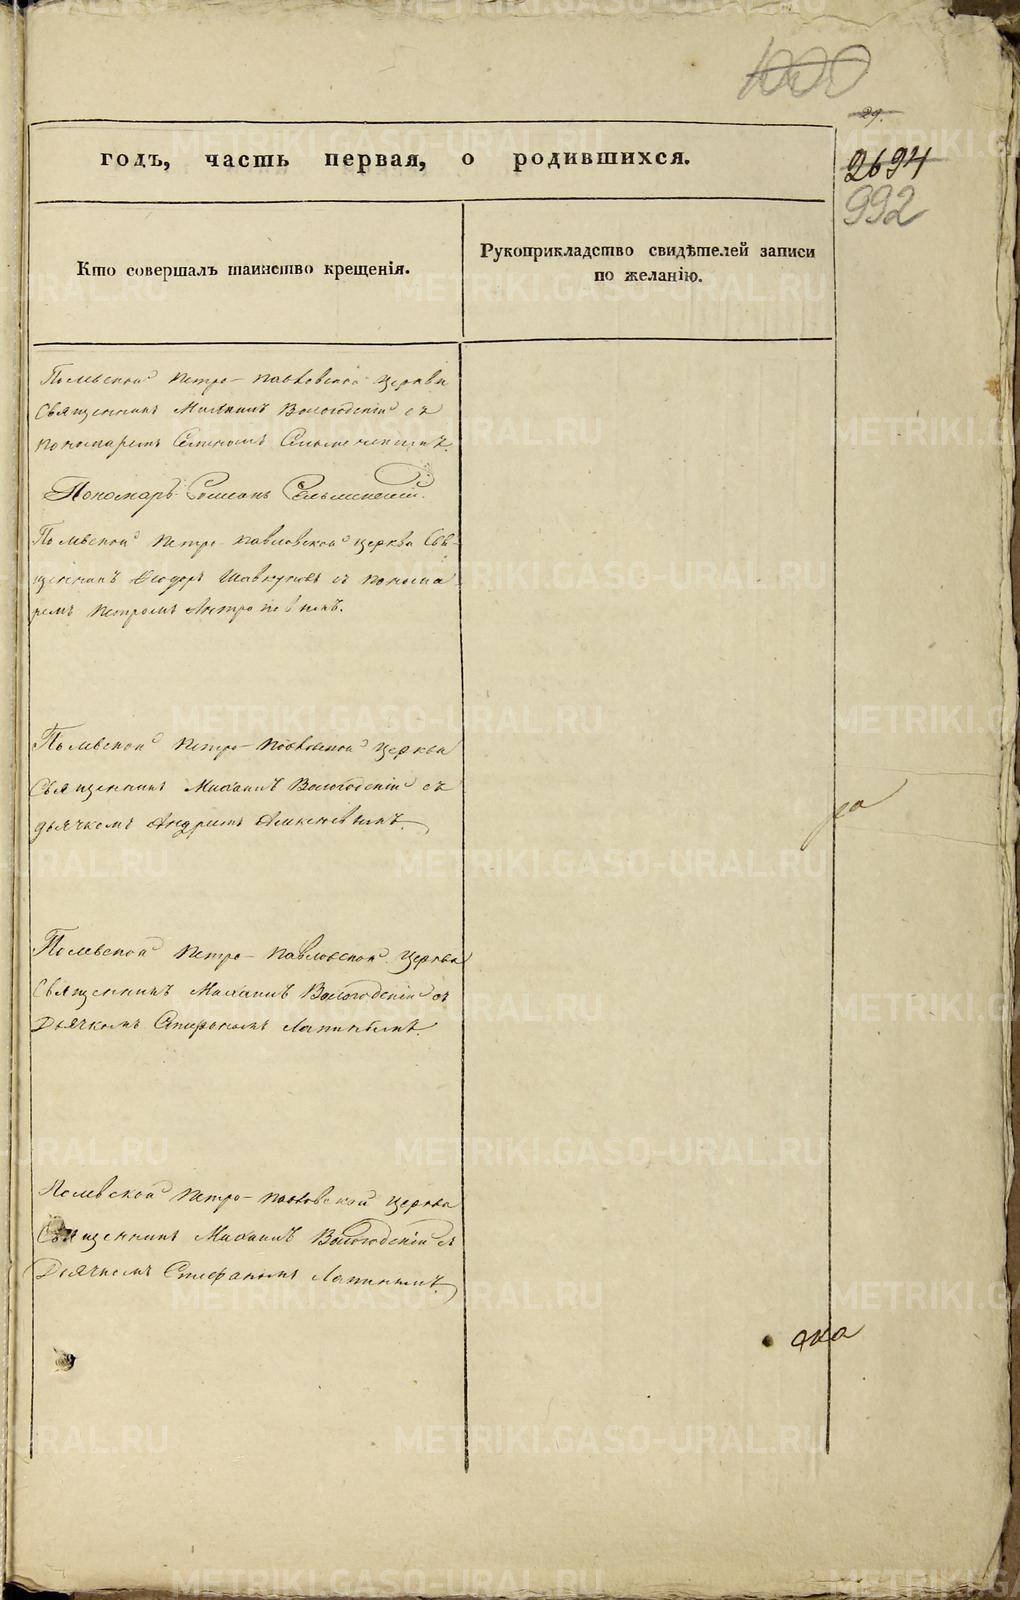 1000
29.
годъ, часть первая, о родившихся.
2694
992
Кто совершалъ таинство крещенія.
Рукоприкладство свидѣтелей записи
по желанію.
Полевской Петро-Павловской церкви
Священникъ Михаилъ Вологодскій съ
пономаремъ Симеономъ
Пономарь Симеонъ
Полевской Петро-Павловской церкви Свя-
щенникъ Ѳеодоръ Шавкуновъ съ понома
ремъ Петромъ
Полевской Петро-Павловской церкви
Священникъ Михаилъ Вологодскій съ
дьячкомъ Андреемъ
Полевской Петро-Павловской церкви
Священникъ Михаилъ Вологодскій съ
Дьячкомъ Стефаномъ Лапинымъ.
Полевской Петро-Павловской церкви
Священникъ Михаилъ Вологодскій съ
Дьячкомъ Стефаномъ Лапинымъ.
METRIKI.GASO-URAL.RU